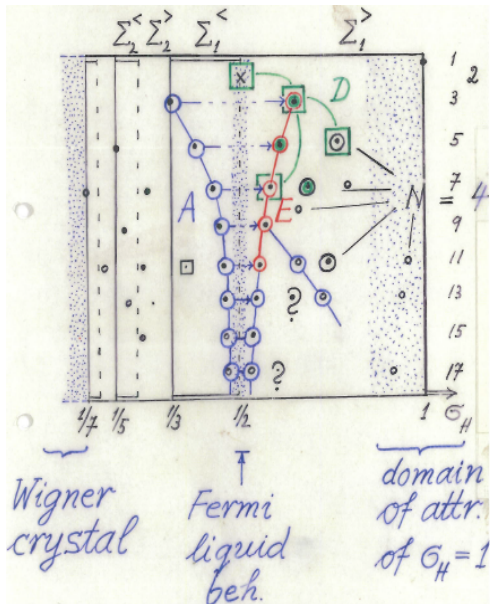 Σ₂^< Σ₂^> Σ₁^< Σ₁^>
1
2
×
D
3
5
7
A
E
N = 4
9
11
13
?
15
?
17
1/7 1/5 1/3 1/2 1 σ_H
Wigner
crystal
Fermi
liquid
beh.
domain
of attr.
of σ_H = 1